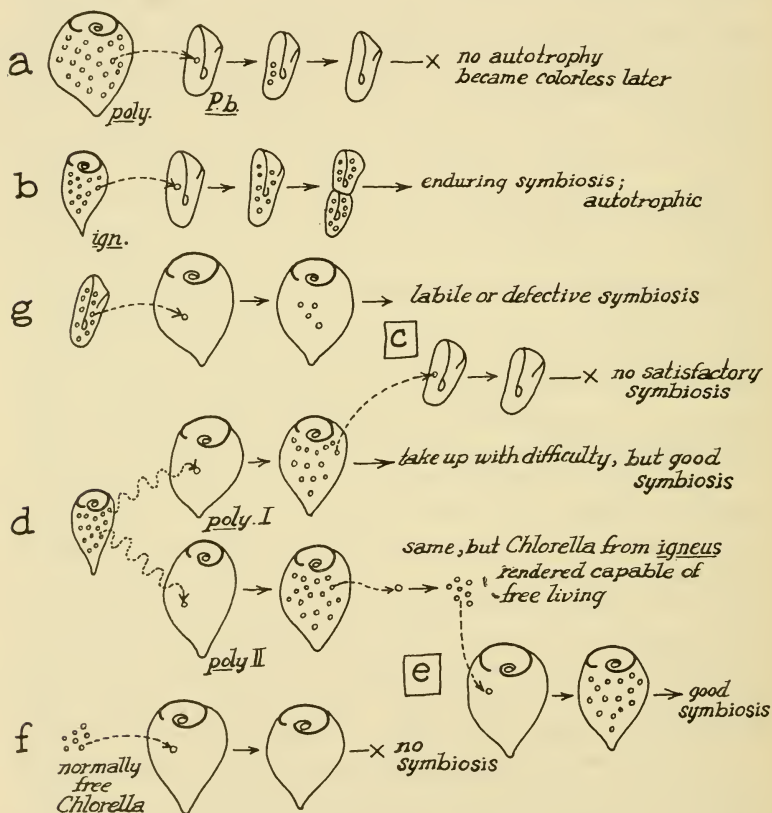 a
poly.
P.b.
no autotrophy
became colorless later
b
ign.
enduring symbiosis;
autotrophic
g
labile or defective symbiosis
c
no satisfactory
symbiosis
d
poly. I
take up with difficulty, but good
symbiosis
poly II
same, but Chlorella from igneus
rendered capable of
free living
e
good
symbiosis
f
normally
free
Chlorella
no
symbiosis